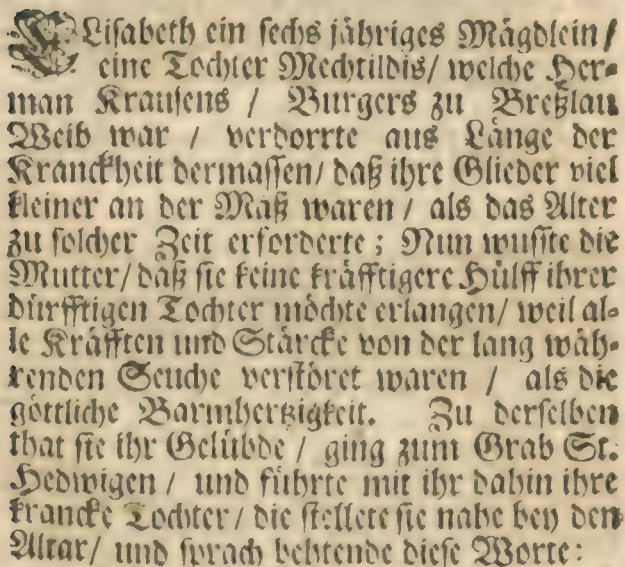 ELisabeth ein sechs jähriges Mägdlein/
eine Tochter Mechtildis/ welche Her-
man Krausens / Burgers zu Breßlau
Weib war / verdorrte aus Länge der
Kranckheit dermassen/ daß ihre Glieder viel
kleiner an der Maß waren / als das Alter
zu solcher Zeit erforderte; Nun wusste die
Mutter/ daß sie keine kräfftigere Hülff ihrer
dürfftigen Tochter möchte erlangen/ weil al-
le Kräfften und Stärcke von der lang wäh-
renden Seuche verstöret waren / als die
göttliche Barmhertzigkeit. Zu derselben
that sie ihr Gelübde / ging zum Grab St.
Hedwigen / und führte mit ihr dahin ihre
krancke Tochter/ die stellete sie nahe bey den
Altar/ und sprach behtende diese Worte: